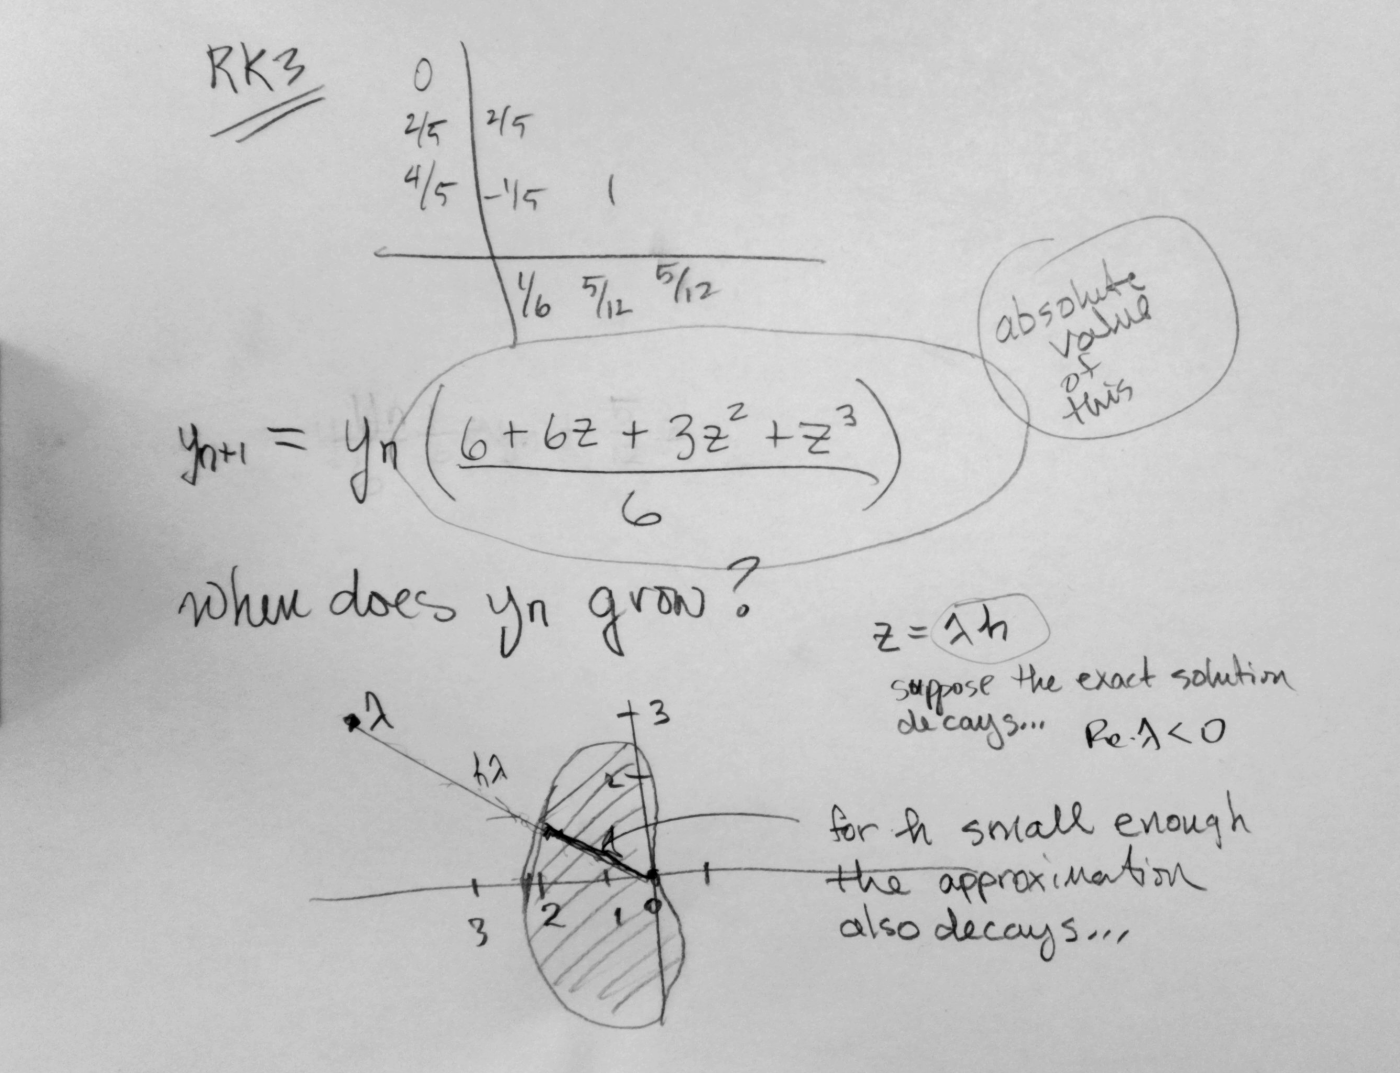 RK3
0
2/5 2/5
4/5 -1/5 1
1/6 5/12 5/12
absolute
value
of
this
yn+1 = yn ( 6 + 6z + 3z² + z³ )
6
when does yn grow?
z = λh
suppose the exact solution
decays... Re λ < 0
λ
3
hλ
2
for h small enough
the approximation
also decays...
1
3 2 1 0